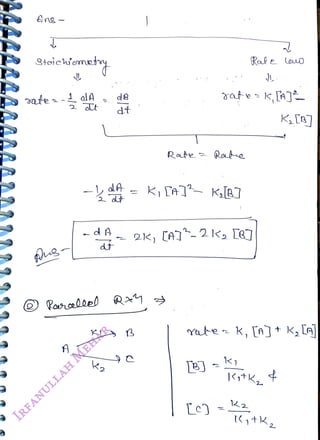 Ans -
Stoichiometry
Rate law
rate = - 1/2 dA/dt = dB/dt
rate = K₁[A]² -
K₂[B]
Rate = Rate
- 1/2 dA/dt = K₁[A]² - K₂[B]
Ans - - dA/dt = 2K₁[A]² - 2K₂[B]
② Parallel Rxn ⇒
A K₁ B
K₂ C
rate = K₁[A] + K₂[A]
[B] = K₁/K₁+K₂ &
[C] = K₂/K₁+K₂
IRFANULLAH MEHAR